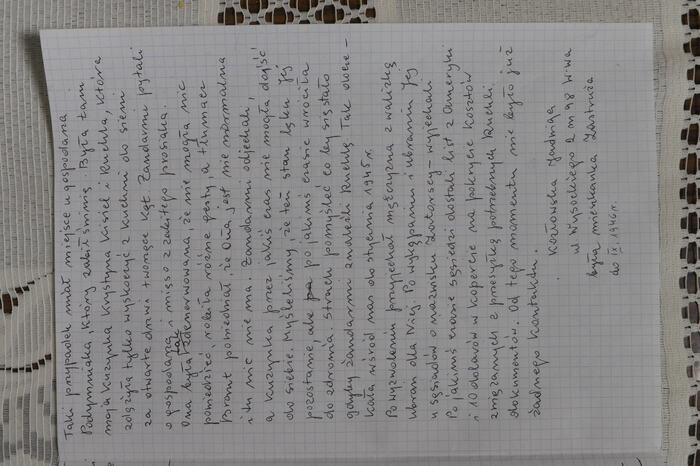 Taki przypadek miał miejsce u gospodarza
Podymniaka który zabił świnię. Była tam
moja kuzynka Krystyna Kisiel i Ruchla, która
zdążyła tylko wyskoczyć z kuchni do sieni
za otwarte drzwi tworzące kąt. Żandarmi pytali
o gospodarza i mięso z zabitego prosiaka.
Ona była tak zdenerwowana, że nie mogła nic
powiedzieć robiła różne gesty, a tłumacz
Brant powiedział, że Ona jest nie normalna
i tu nic nie ma. Żandarmi odjechali,
a kuzynka przez jakiś czas nie mogła dojść
do siebie. Myśleliśmy, że ten stan lęku jej
pozostanie, ale po jakimś czasie wróciła
do zdrowia. Strach pomyśleć co by się stało
gdyby żandarmi znaleźli Ruchlę. Tak
wśród nas do stycznia 1945 r.
Po wyzwoleniu przyjechał mężczyzna z walizką
ubrań dla Niej. Po wykąpaniu i ubraniu Jej
u sąsiadów o nazwisku - wyjechali
Po jakimś czasie sąsiedzi dostali list z Ameryki
i 10 dolarów w kopercie na pokrycie kosztów
związanych z przesyłką potrzebnych Ruchli
dokumentów. Od tego momentu nie było już
żadnego kontaktu.
Kozłowska Jadwiga
ul Wysockiego 2 m 98 W-wa
była mieszkanka
do IX. 1946 r.